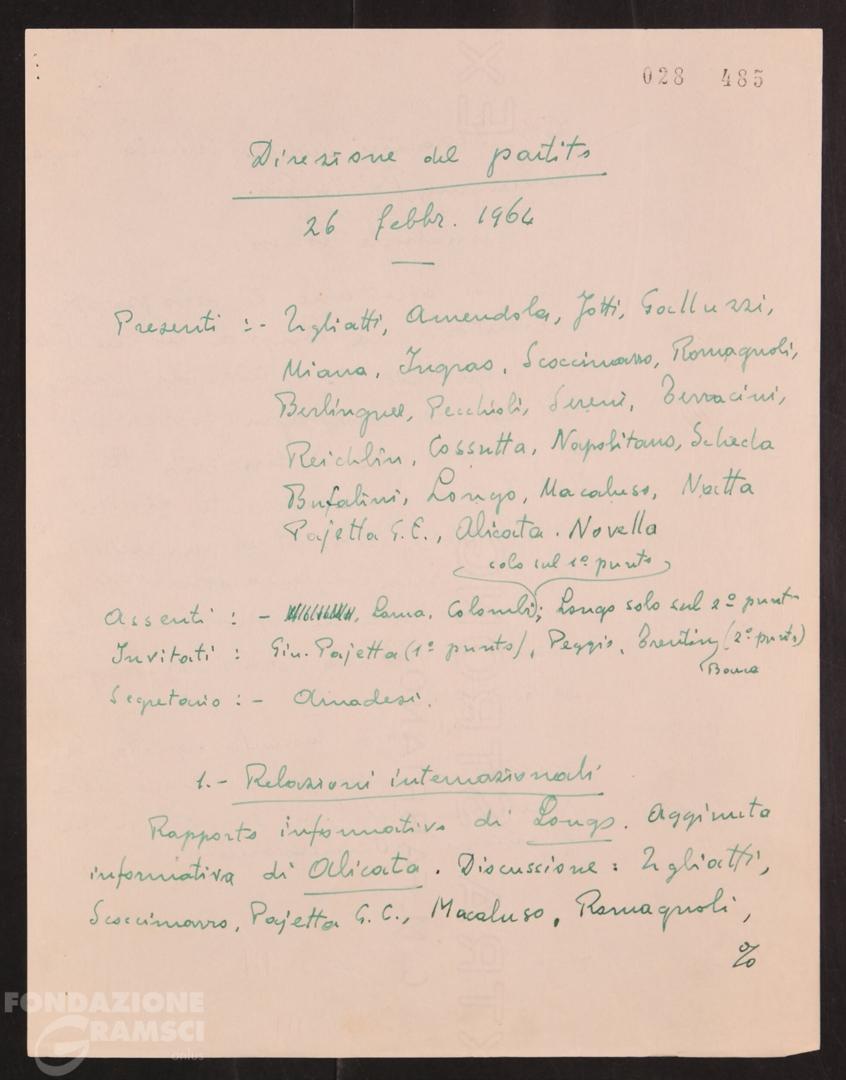 028 485
Direzione del partito
26 febbr. 1964
Presenti :- Togliatti, Amendola, Jotti, Galluzzi,
Miana, Ingrao, Scoccimarro, Romagnoli,
Berlinguer, Pecchioli, Sereni, Terracini,
Reichlin, Cossutta, Napolitano, Scheda
Bufalini, Longo, Macaluso, Natta
Pajetta G.C., Alicata. Novella
solo sul 1º punto
Assenti : - Lama, Colombi; Longo solo sul 2º punto
Invitati : Giu. Pajetta (1º punto), Peggio, Trentin, (2º punto)
Segretario :- Amadesi.
1.- Relazioni internazionali
Rapporto informativo di Longo. Aggiunta
informativa di Alicata. Discussione : Togliatti,
Scoccimarro, Pajetta G.C., Macaluso, Romagnoli,
%
FONDAZIONE
GRAMSCI
onlus